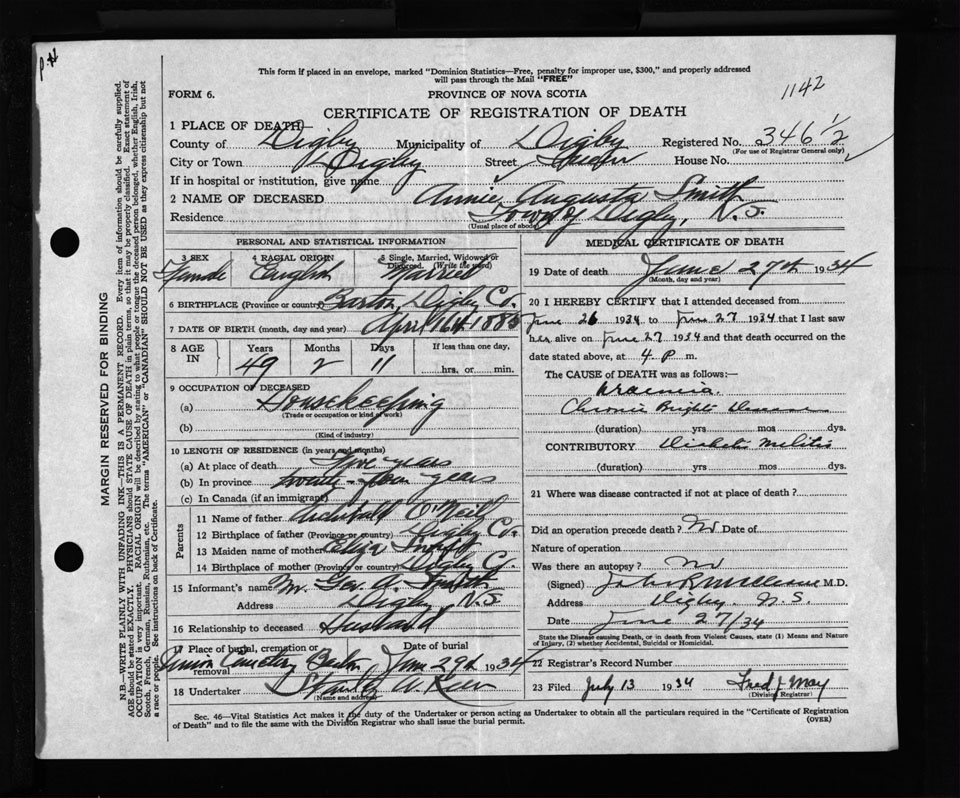 This form if placed in an envelope, marked "Dominion Statistics—Free, penalty for improper use, $300," and properly addressed
will pass through the Mail "FREE"
1142
FORM 6.
PROVINCE OF NOVA SCOTIA
CERTIFICATE OF REGISTRATION OF DEATH
1 PLACE OF DEATH
County of Digby Municipality of Digby Registered No. 346 1/2
(For use of Registrar General only)
City or Town Digby Street House No.
If in hospital or institution, give name
2 NAME OF DECEASED Annie Augusta Smith
Residence Town of Digby, N.S.
(Usual place of abode)
PERSONAL AND STATISTICAL INFORMATION
3 SEX 4 RACIAL ORIGIN 5 Single, Married, Widowed or Divorced. (Write the word)
Female English Married
6 BIRTHPLACE (Province or country) Barton, Digby Co.
7 DATE OF BIRTH (month, day and year) April 16th 1885
8 AGE IN Years Months Days If less than one day,
49 2 11 hrs. or min.
9 OCCUPATION OF DECEASED
(a) Housekeeping
(Trade or occupation or kind of work)
(b)
(Kind of industry)
10 LENGTH OF RESIDENCE (in years and months)
(a) At place of death Five years
(b) In province years
(c) In Canada (if an immigrant)
Parents
11 Name of father Archibald O'Neil
12 Birthplace of father (Province or country) Digby Co.
13 Maiden name of mother Eliza
14 Birthplace of mother (Province or country) Digby Co.
15 Informant's name Mr. Geo. A. Smith
Address Digby, N.S
16 Relationship to deceased Husband
17 Place of burial, cremation or removal Date of burial
Cemetery June 29th 1934
18 Undertaker Stanley W.
(Name and address)
MEDICAL CERTIFICATE OF DEATH
19 Date of death June 27th 1934
(Month, day and year)
20 I HEREBY CERTIFY that I attended deceased from
June 26 1934 to June 27 1934 that I last saw
her alive on June 27 1934 and that death occurred on the
date stated above, at 4 P m.
The CAUSE of DEATH was as follows:—
Uraemia.
Chronic Brights Disease
(duration) yrs mos dys.
CONTRIBUTORY Diabetes Melitis
(duration) yrs mos dys.
21 Where was disease contracted if not at place of death?
Did an operation precede death? No Date of
Nature of operation
Was there an autopsy? No
(Signed) M.D.
Address Digby. N.S.
Date June 27/34
State the Disease causing Death, or in death from Violent Causes, state (1) Means and Nature
of Injury, (2) whether Accidental, Suicidal or Homicidal.
22 Registrar's Record Number
23 Filed July 13 1934 Fred J. May
(Division Registrar)
Sec. 46—Vital Statistics Act makes it the duty of the Undertaker or person acting as Undertaker to obtain all the particulars required in the "Certificate of Registration
of Death" and to file the same with the Division Registrar who shall issue the burial permit.
(OVER)
MARGIN RESERVED FOR BINDING
N.B.—WRITE PLAINLY WITH UNFADING INK—THIS IS A PERMANENT RECORD. Every item of information should be carefully supplied.
AGE should be stated EXACTLY. PHYSICIANS should STATE CAUSE OF DEATH in plain terms, so that it may be properly classified. Exact statement of
OCCUPATION is very important. RACIAL ORIGIN will be described by stating to what people or tongue the deceased person belonged, whether English, Irish,
Scotch, French, German, Russian, Ruthenian, etc. The terms "AMERICAN" or "CANADIAN" SHOULD NOT BE USED as they express citizenship but not
a race or people. See instructions on back of Certificate.